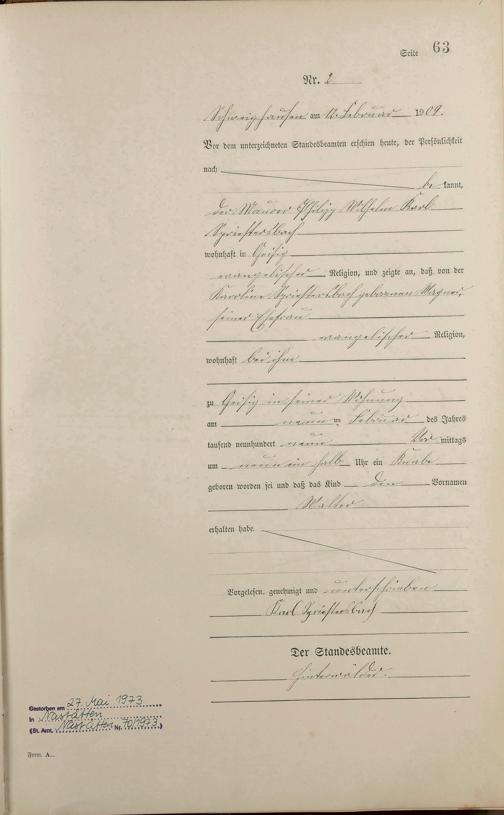 Seite 63
Nr. 2
Schweighausen am 12. Februar 1909.
Vor dem unterzeichneten Standesbeamten erschien heute, der Persönlichkeit
nach
be kannt,
der Maurer Philipp Wilhelm Karl
Spriestersbach
wohnhaft in Geisig
evangelischer Religion, und zeigte an, daß von der
Karoline Spriestersbach geborenen Wagner,
seiner Ehefrau
evangelischer Religion,
wohnhaft bei ihm
zu Geisig in seiner Wohnung
am neunten Februar des Jahres
tausend neunhundert neun Vor mittags
um neun ein halb Uhr ein Knabe
geboren worden sei und daß das Kind den Vornamen
Walter
erhalten habe.
Vorgelesen, genehmigt und unterschrieben
Karl Spriestersbach
Der Standesbeamte.
Hinterwälder.
Gestorben am 27. Mai 1973
in Nastätten
(St. Amt. Nastätten Nr. 70/1973)
Form. A...